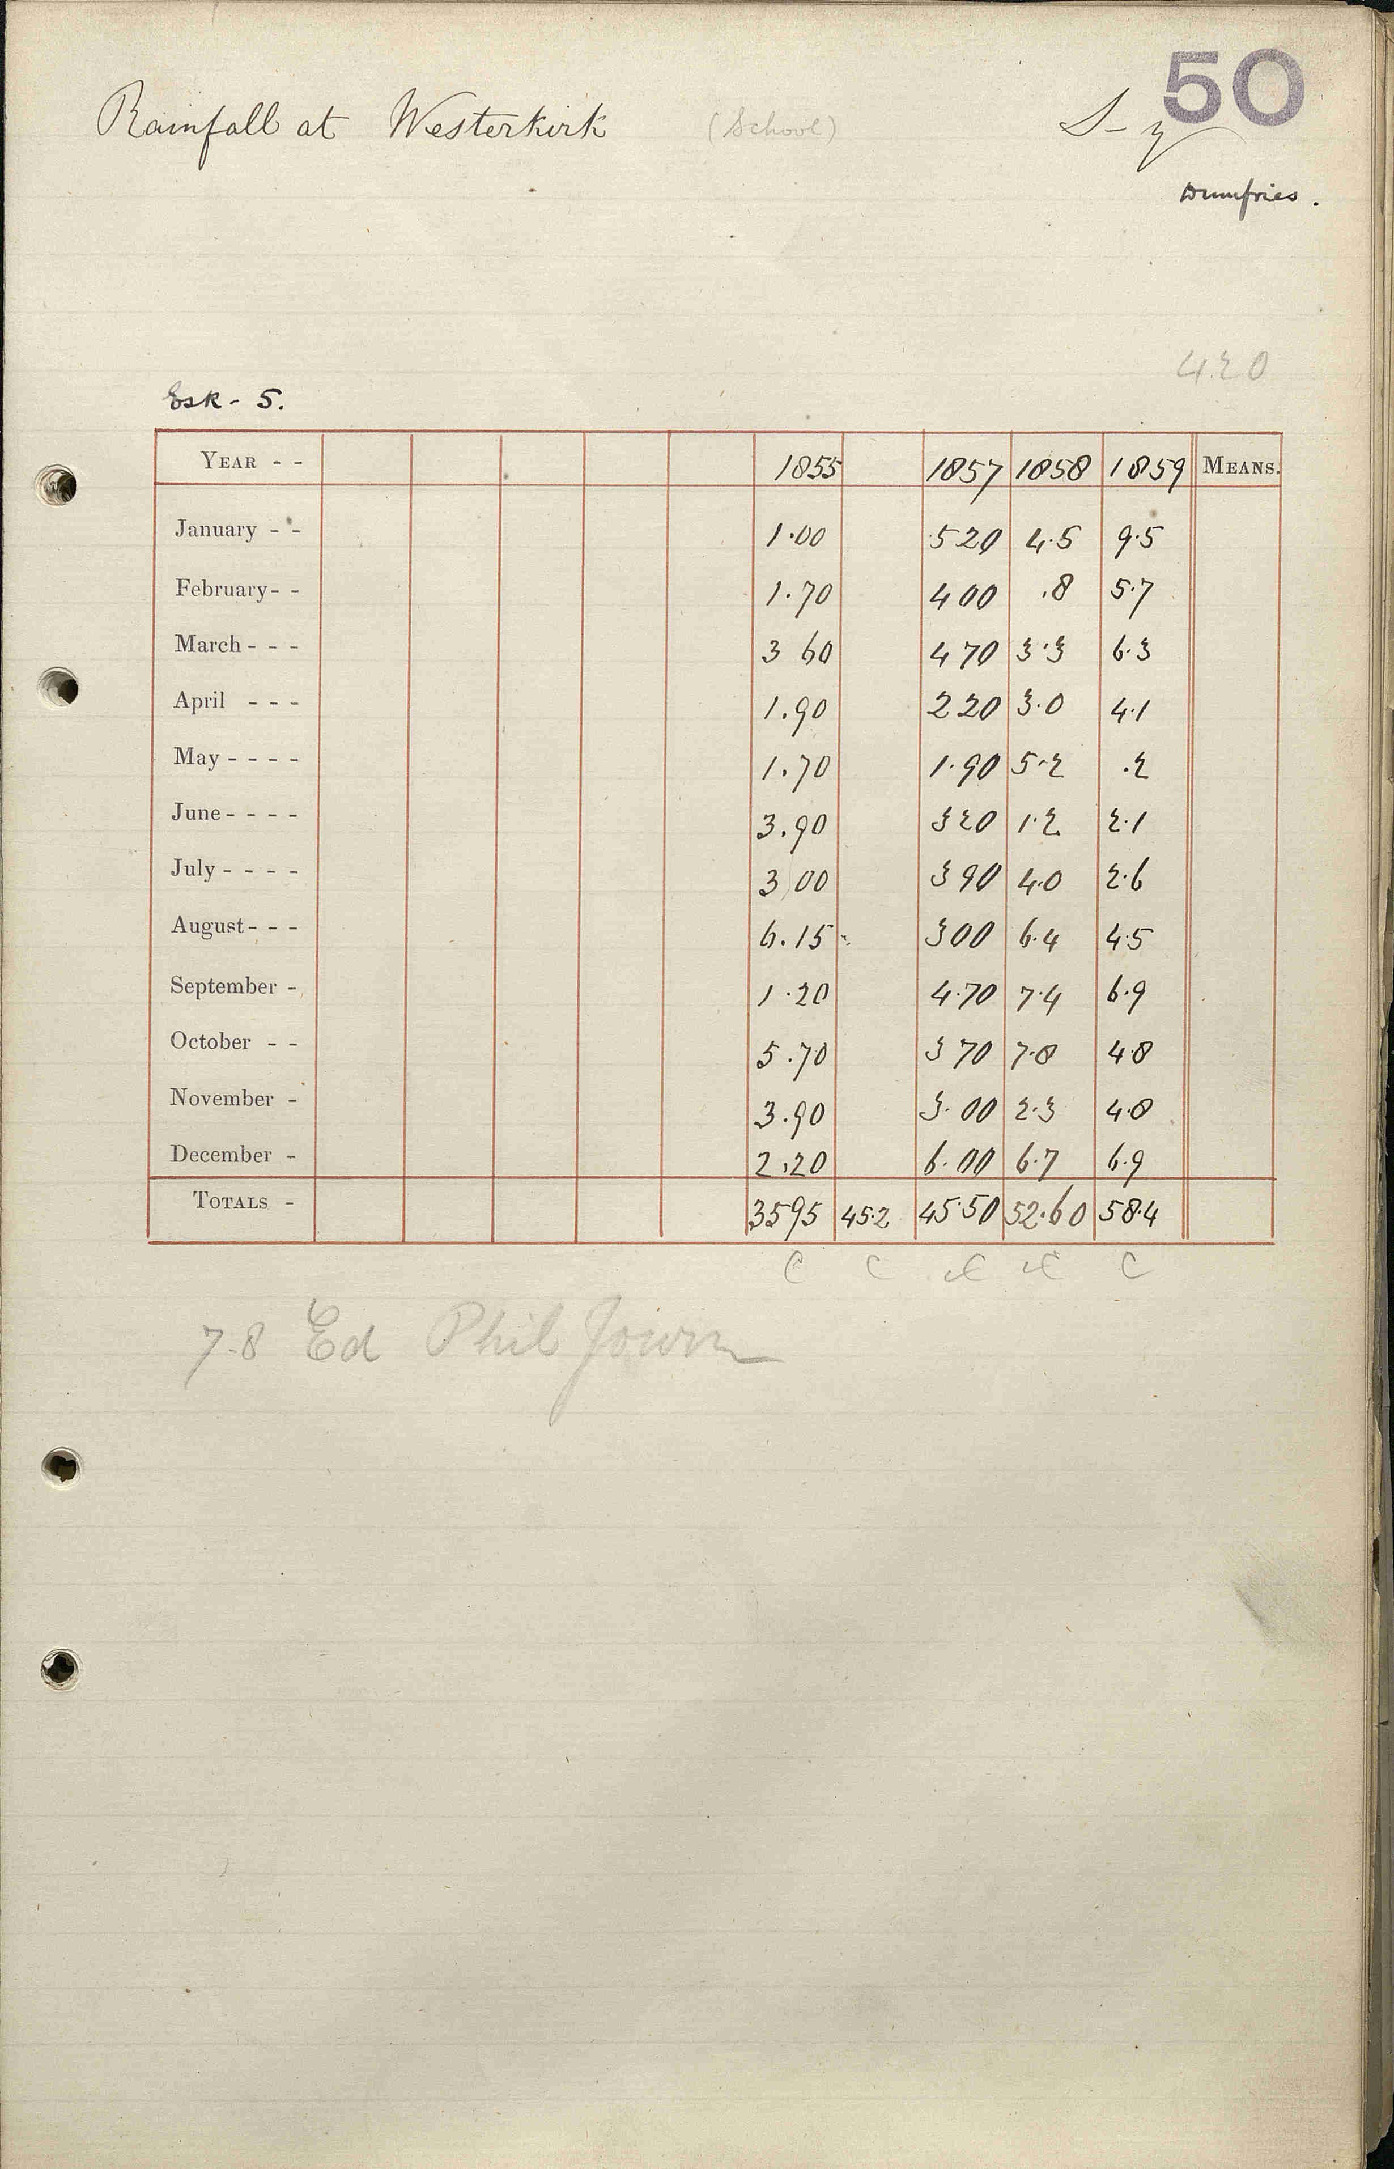 50
Rainfall at Westerkirk (School)
Dumfries.
420
Esk - 5.
YEAR - - 1855 1857 1858 1859 MEANS.
January - - 1.00 5 20 4.5 9.5
February - - 1.70 4 00 .8 5.7
March - - - 3 60 4 70 3.3 6.3
April - - - 1.90 2 20 3.0 4.1
May - - - - 1.70 1.90 5.2 .2
June - - - - 3.90 3 20 1.2 2.1
July - - - - 3 00 3 90 4.0 2.6
August - - - 6.15 3 00 6.4 4.5
September - 1.20 4.70 7.4 6.9
October - - 5.70 3 70 7.8 4.8
November - 3.90 3.00 2.3 4.8
December - 2.20 6.00 6.7 6.9
TOTALS - 35 95 45.2 45.50 52.60 58.4
C C C
7.8 Ed Phil Journ